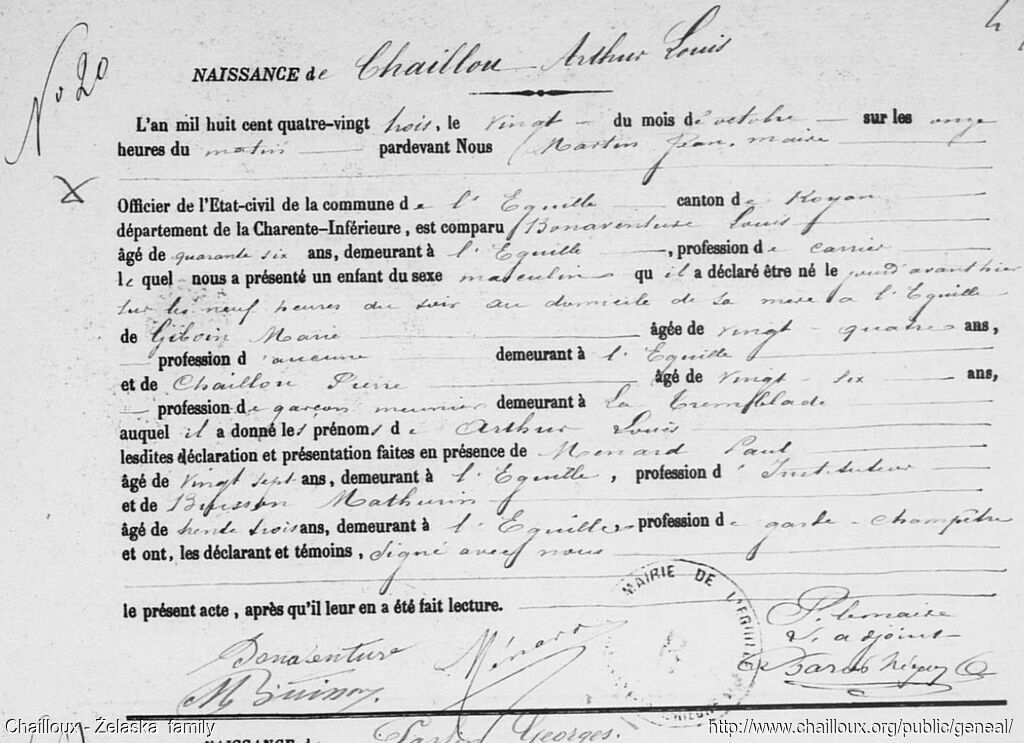 No 20
NAISSANCE de Chaillou Arthur Louis
L'an mil huit cent quatre-vingt trois, le vingt du mois d'octobre sur les onze
heures du matin pardevant Nous Martin Jean, maire
Officier de l'Etat-civil de la commune de l'Eguille canton de Royan
département de la Charente-Inférieure, est comparu Bonaventure Louis
âgé de quarante six ans, demeurant à l'Eguille, profession de carrier
lequel nous a présenté un enfant du sexe masculin qu'il a déclaré être né le jour d'avant hier
sur les neuf heures du soir au domicile de sa mère à l'Eguille
de Marie âgée de vingt-quatre ans,
profession d'aucune demeurant à l'Eguille
et de Chaillou Pierre âgé de vingt-six ans,
profession de garçon meunier demeurant à La Tremblade
auquel il a donné les prénoms de Arthur Louis
lesdites déclaration et présentation faites en présence de Menard Paul
âgé de vingt sept ans, demeurant à l'Eguille, profession d'Instituteur
et de Mathurin
âgé de trente trois ans, demeurant à l'Eguille profession de garde-champêtre
et ont, les déclarant et témoins, signé avec nous
le présent acte, après qu'il leur en a été fait lecture.
MAIRIE DE L'EGUILLE
P. le maire
adjoint
Bonaventure Ménard
Chailloux - Żelaska family http://www.chailloux.org/public/geneal/
NAISSANCE de Georges.